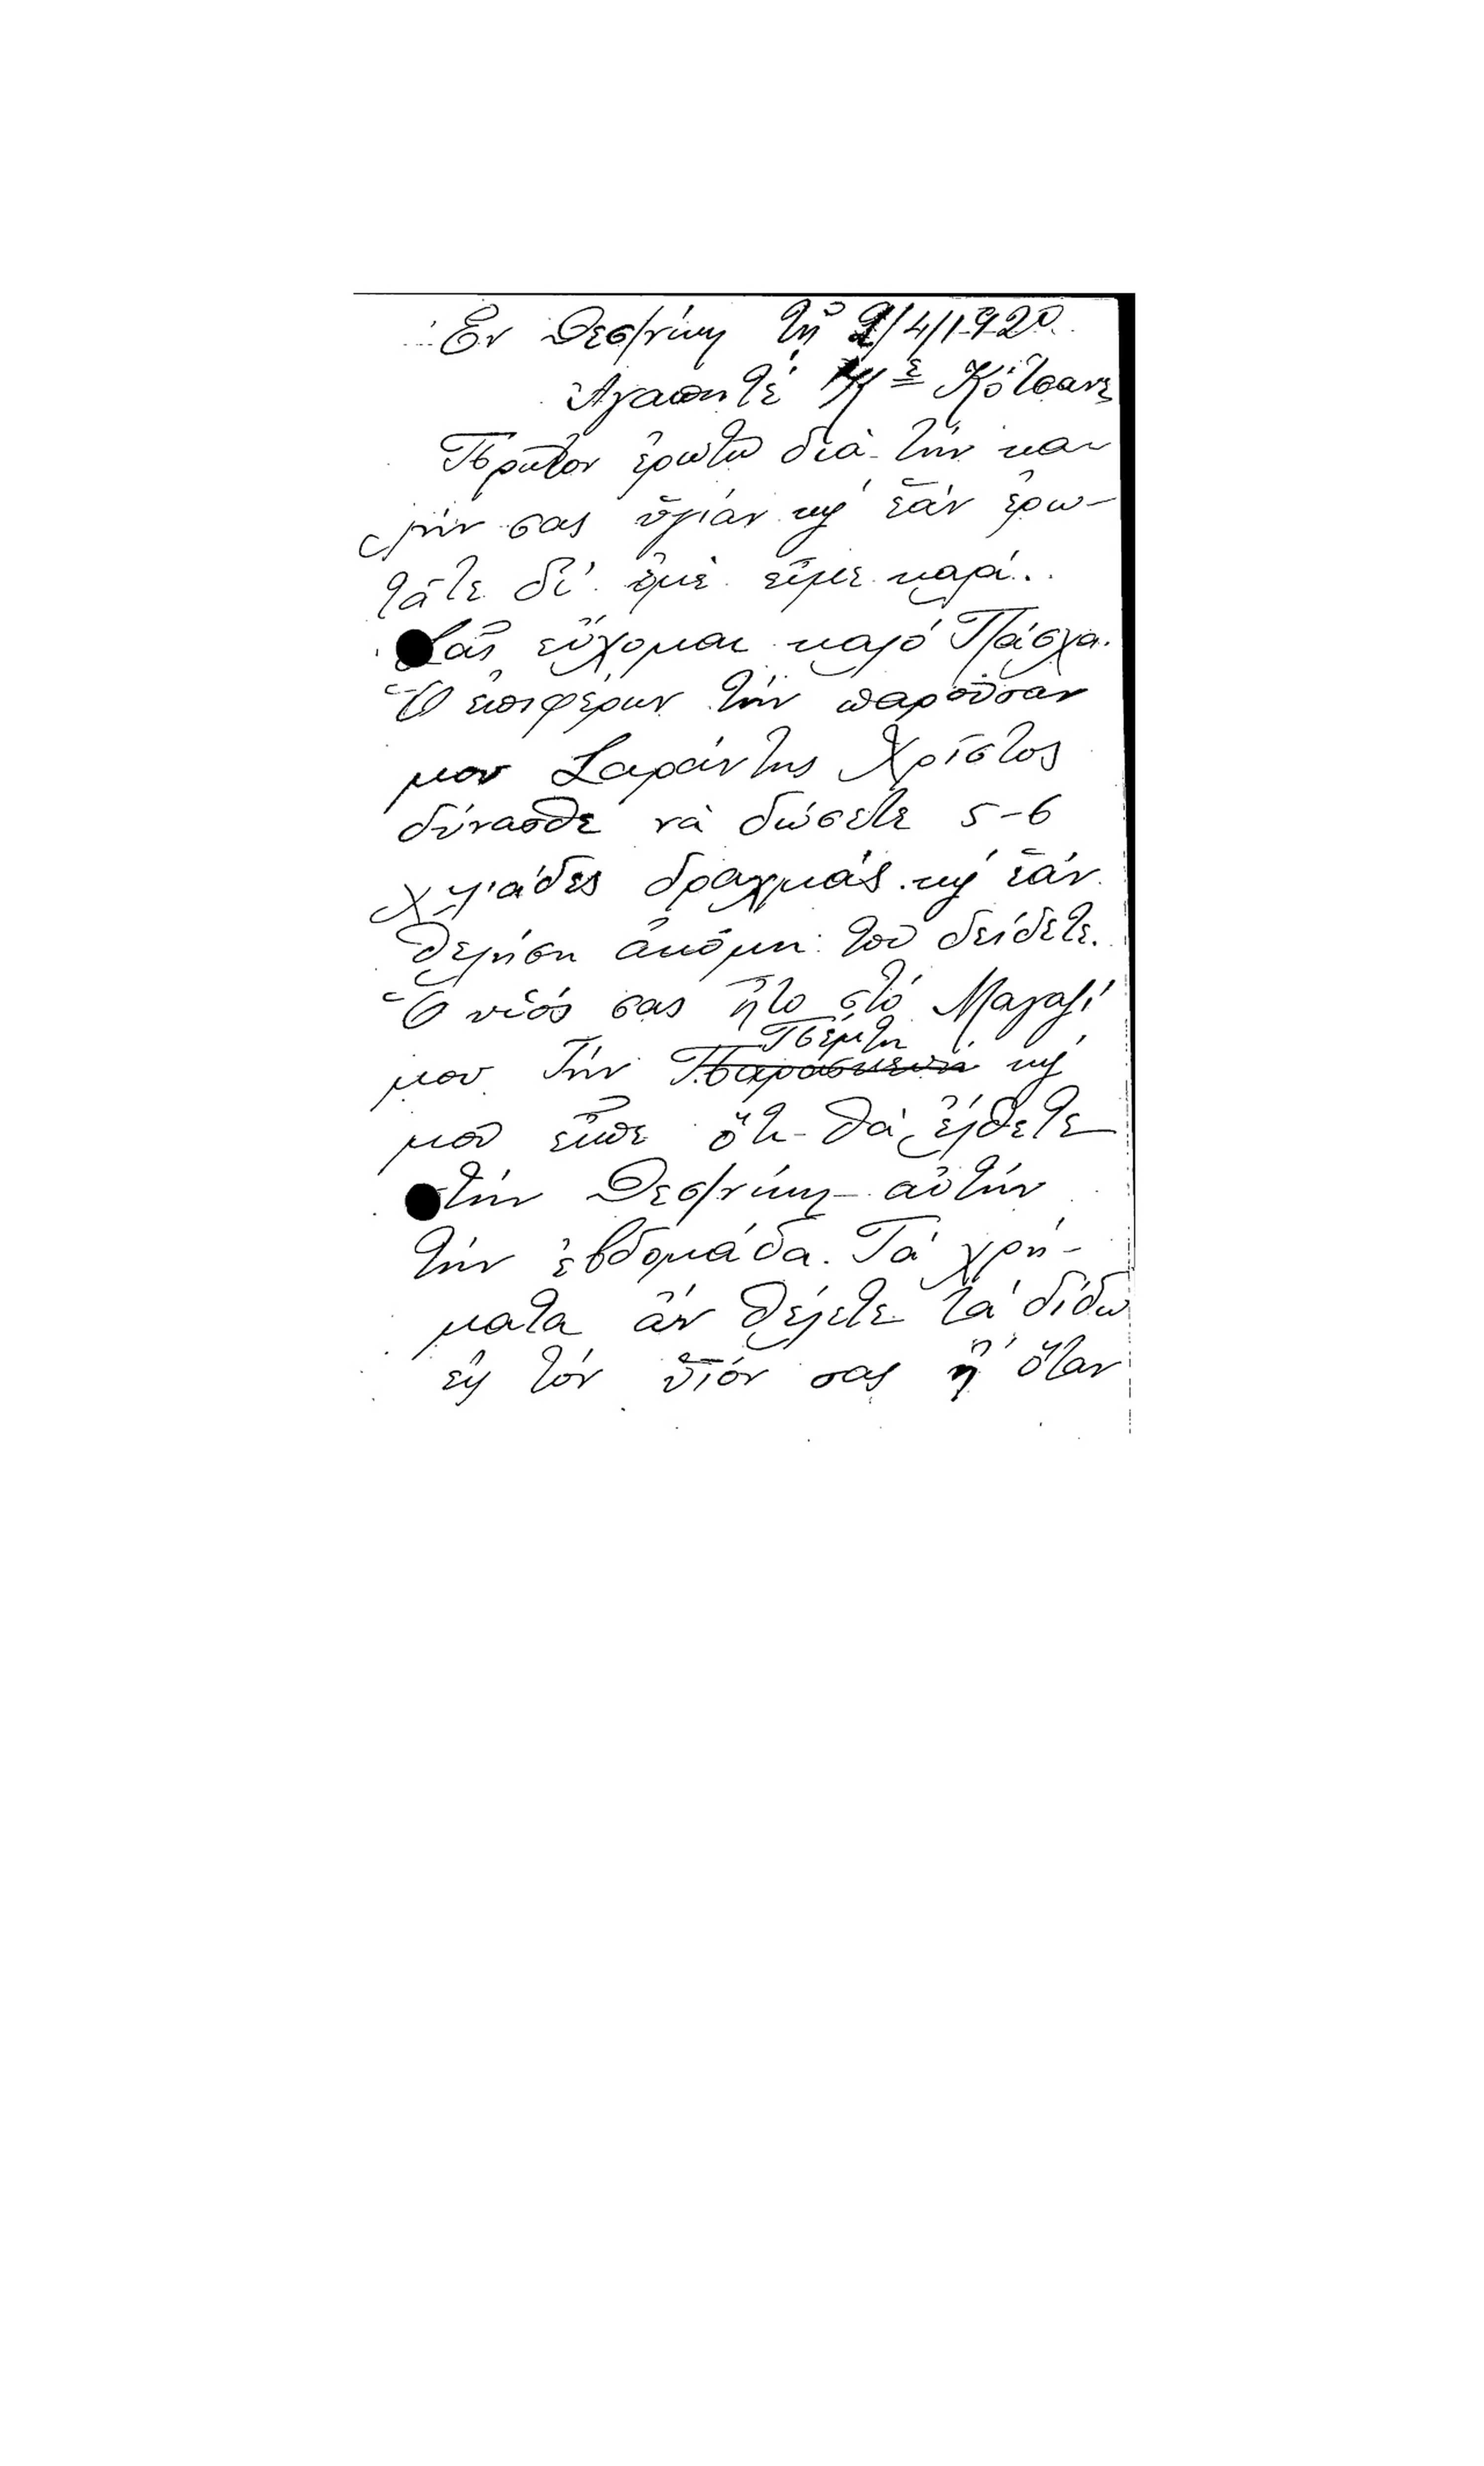 Ἐν Θεσ/νίκῃ τῇ 2/4/1920
Ἀγαπητέ Κε Κότσανε
Πρῶτον ἐρωτῶ διὰ τὴν κα-
λήν σας ὑγιάν καὶ ἐάν ἐρω-
τᾶτε δι' ἐμὲ εἶμε καλά..
Σᾶς εὔχομαι καλό Πάσχα.
Ὁ ἐπιφέρων τὴν παροῦσαν
μου Σαράντης Χρίστος
δύνασθε νὰ δώσετε 5-6
χιλιάδες δραχμάς καὶ ἐάν
θελήση ἀκόμη τοῦ δείδετε.
Ὁ υἱός σας ἦτο στό Μαγαζί
μου Τήν Παρασκευή Πέμτη καὶ
μοῦ εἶπε ὅτι θὰ ἔλθετε
στήν Θεσ/νίκη αὐτήν
τήν ἑβδομάδα. Τά χρή-
ματα ἄν θέλετε τά δίδω
εἰς τόν υἱόν σας ἤ ὅταν